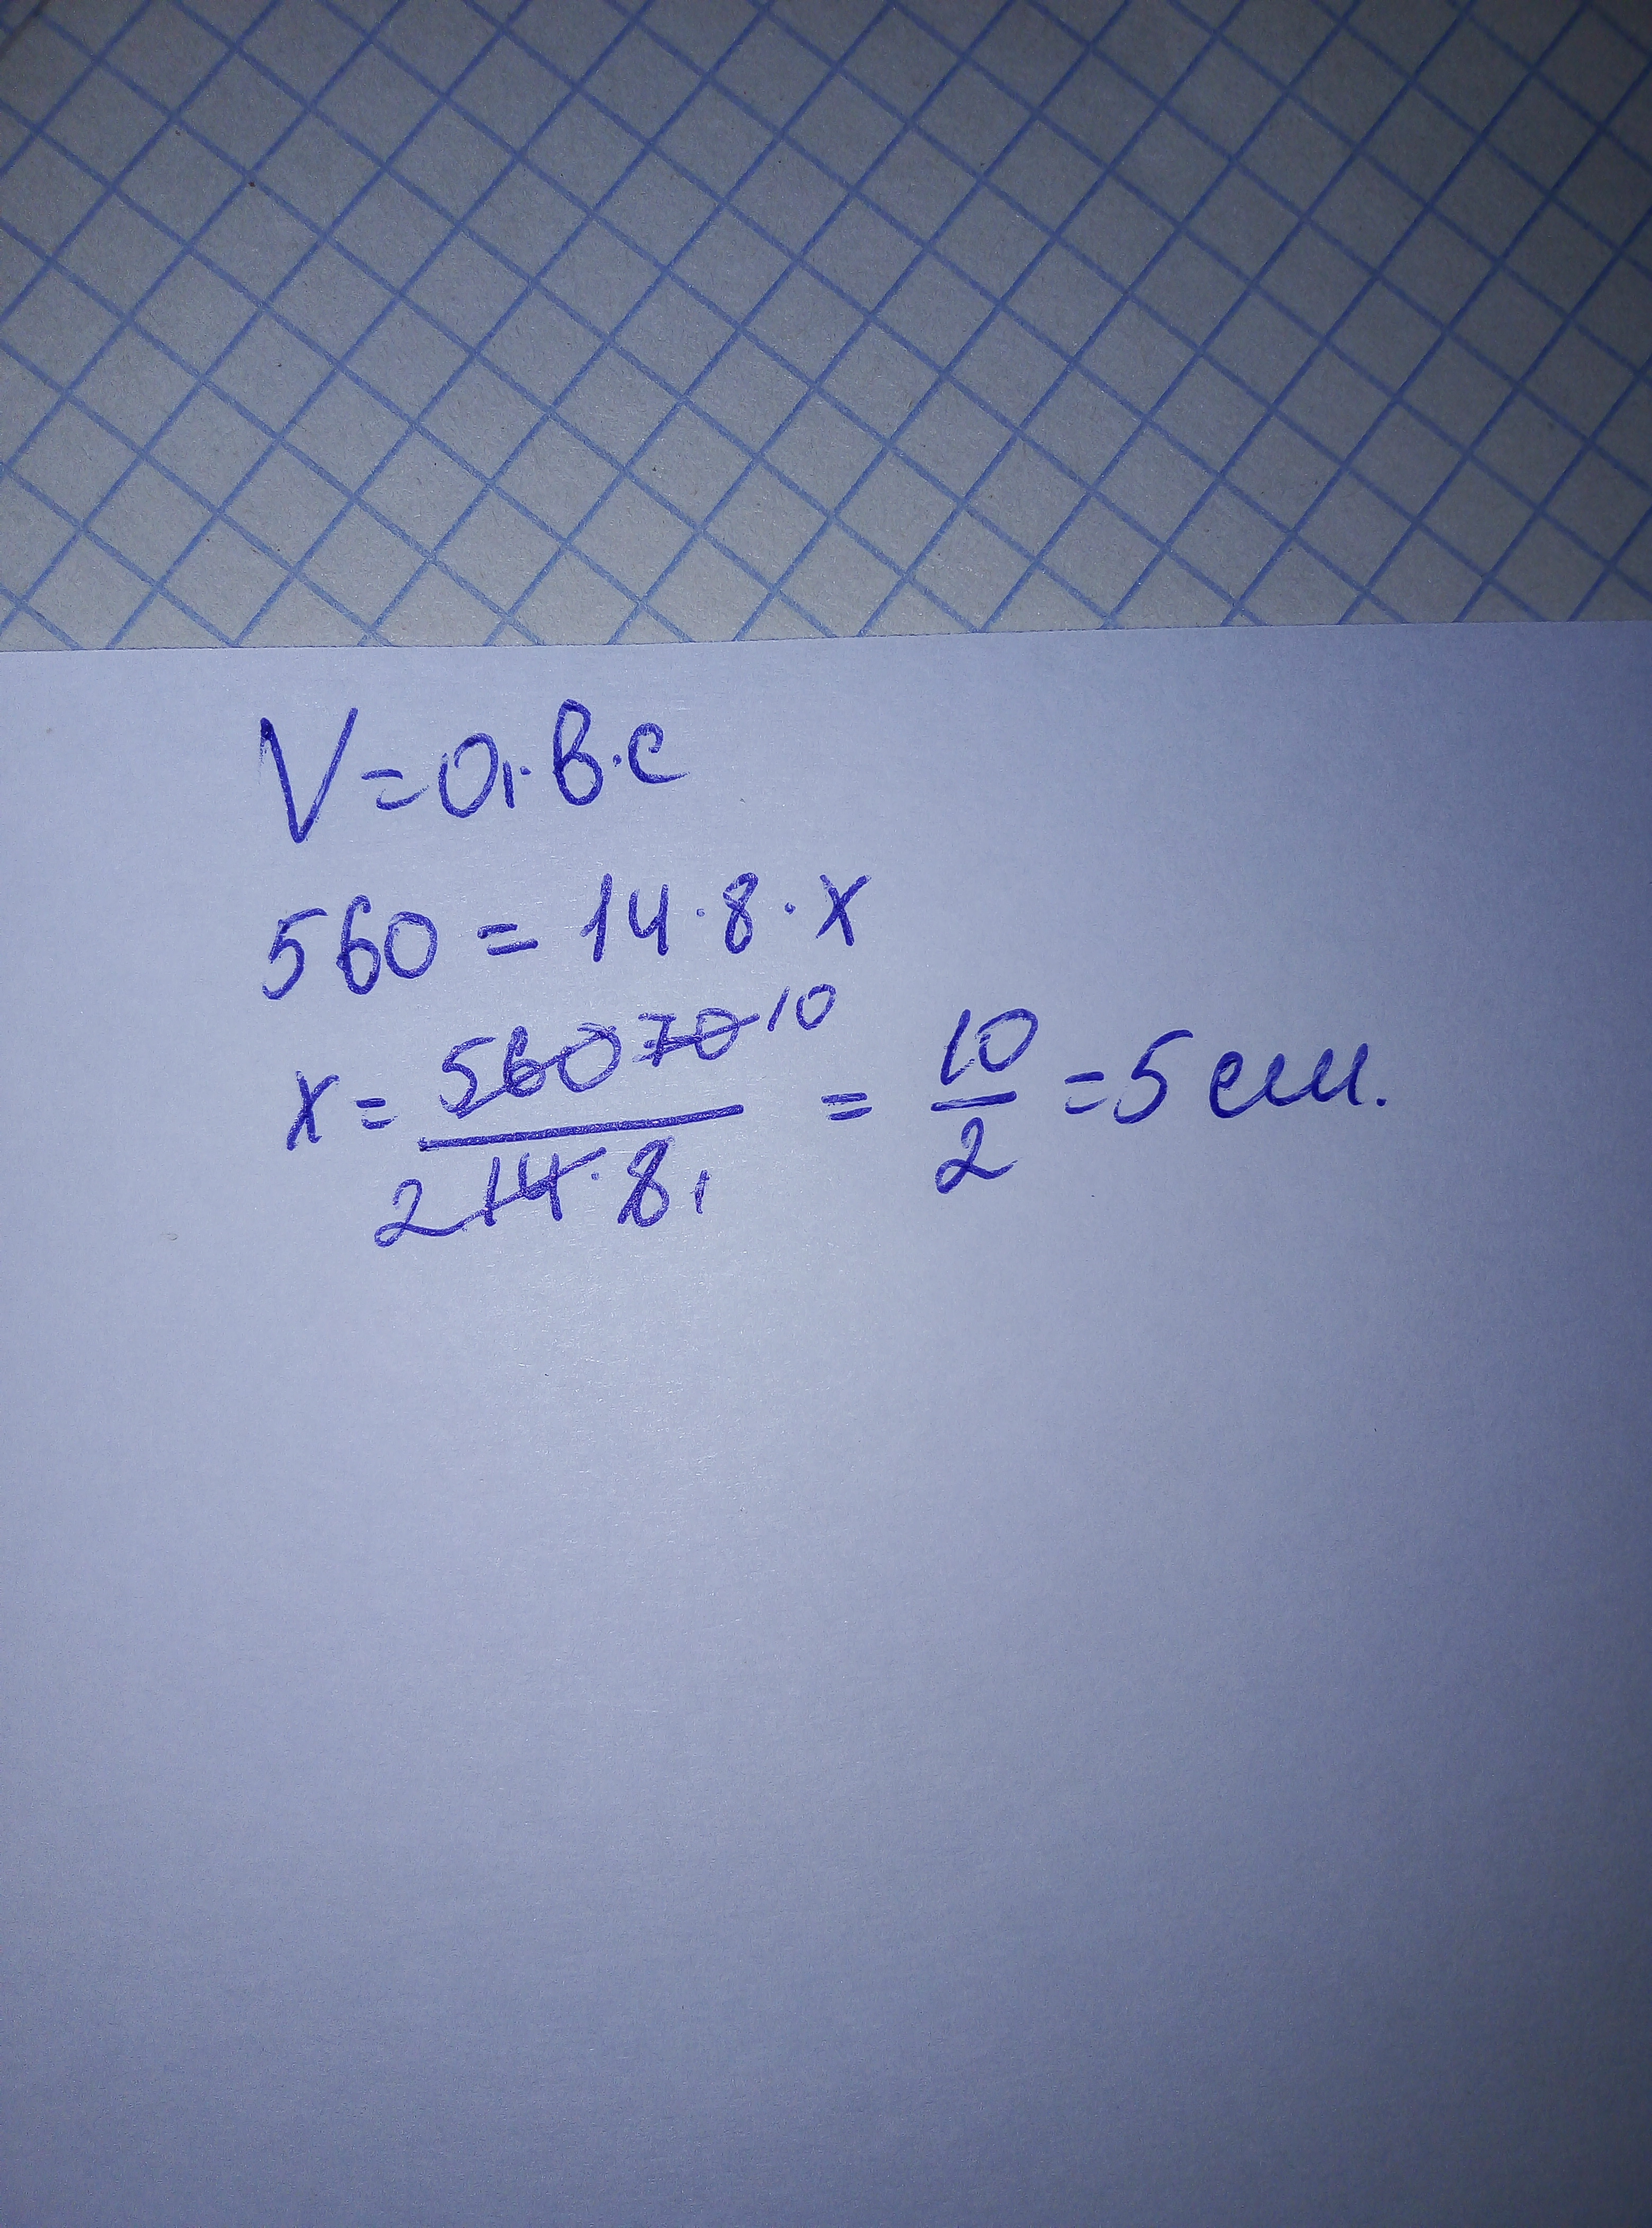 V=a·в·с
560 = 14·8·x
x = 560 70 10 / 2 14·8 1 = 10/2 = 5 см.